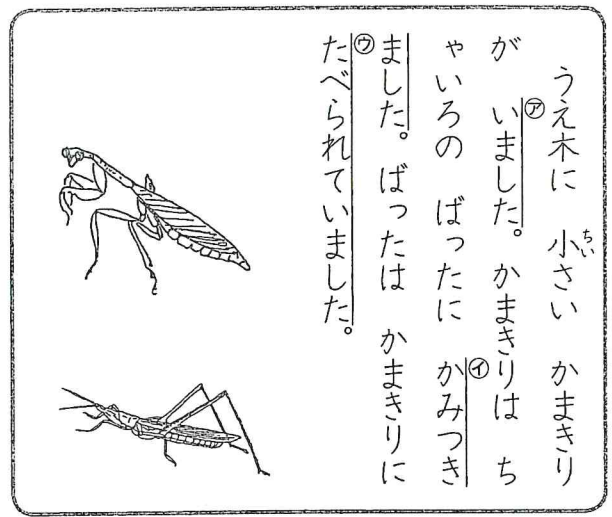 うえ木に 小さい かまきり
ちい
が いました。かまきりは ち
㋐
ゃいろの ばったに かみつき
㋑
ました。ばったは かまきりに
たべられていました。
㋒